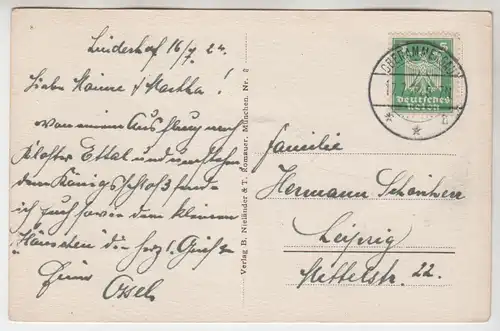 Linderhof 16/7. 24.
Liebe Männe & Martha!
von einem Ausflug nach
Kloster Ettal und
dem Königsschloß sende
ich Euch sowie dem kleinen
Häuschen die herzl. Grüße
Euer
Verlag B. Nieländer & T. Romauer, München, Nr. 2
OBERAMMERGAU
5
Deutsches
Reich
Familie
Hermann
Leipzig
Mittelstr. 22.